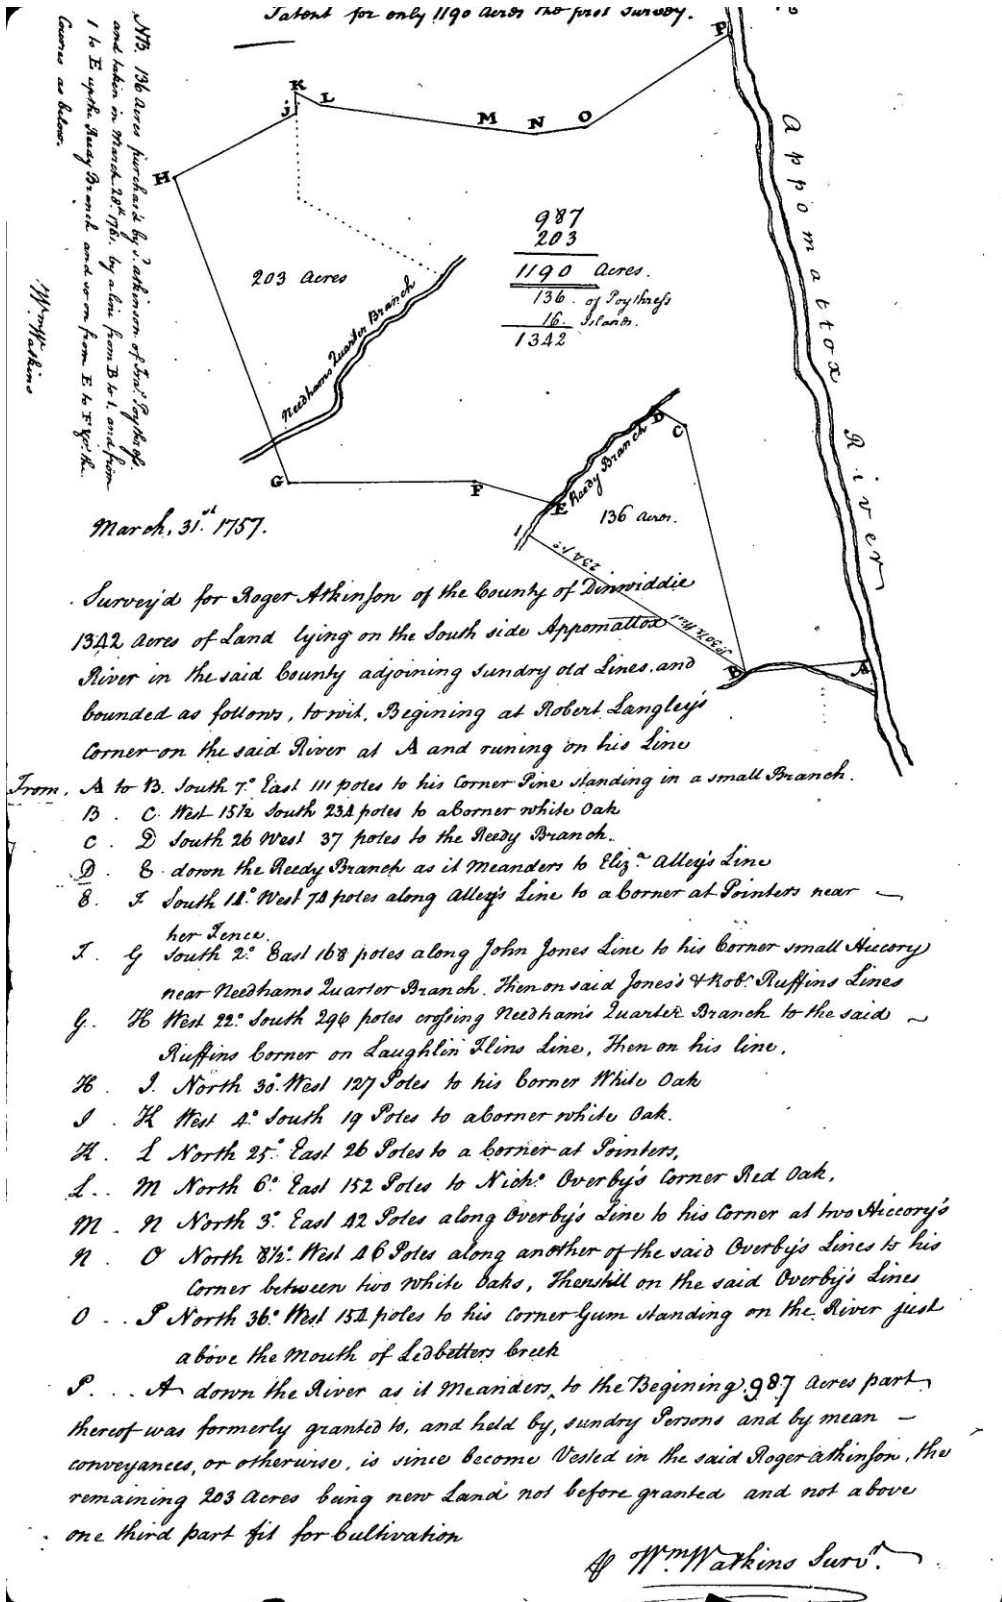 Patent for only 1190 Acres the first Survey.
NB. 136 Acres purchas'd by R. Atkinson of Fras. Poythress.
and taken in March 28th 1761. by a line from B to 1. and from
1 to E up the Reedy Branch and so on from E to F &c. the
Courses as below.
Wm Watkins
P
K
L
J
M N O
H
Appomattox River
987
203
1190 Acres.
136. of Poythress
16. Islands.
1342
203 Acres
Needhams Quarter Branch
D
C
Reedy Branch
G
F
E
1
136 Acres.
234 po.
B
A
March, 31st 1757.
Survey'd for Roger Atkinson of the County of Dinwiddie
1342 Acres of Land lying on the South side Appomattox
River in the said County adjoining sundry old Lines, and
bounded as follows, to wit, Begining at Robert Langley's
Corner on the said River at A and runing on his Line
From, A to B. South 7° East 111 poles to his Corner Pine standing in a small Branch.
B . C. West 15½ South 234 poles to a Corner white Oak
C . D South 26 West 37 poles to the Reedy Branch.
D . E. down the Reedy Branch as it Meanders to Eliza. Alley's Line
E. F South 14° West 74 poles along Alley's Line to a Corner at Pointers near
her Fence.
F. G South 2° East 168 poles along John Jones Line to his Corner small Hiccory
near Needhams Quarter Branch. Then on said Jones's & Robt. Ruffins Lines
G. H West 22° South 296 poles crossing Needham's Quarter Branch to the said
Ruffins Corner on Laughlin Flins Line, Then on his line,
H . J. North 30° West 127 Poles to his Corner White Oak
J . K West 4° South 19 Poles to a Corner white Oak.
K . L North 25° East 26 Poles to a Corner at Pointers,
L.. M North 6° East 152 Poles to Nicho. Overby's Corner Red Oak,
M . N North 3° East 42 Poles along Overby's Line to his Corner at two Hiccory's
N . O North 8½° West 46 Poles along another of the said Overby's Lines to his
Corner between two White Oaks, Then still on the said Overby's Lines
O .. P North 36° West 154 poles to his Corner Gum standing on the River just
above the Mouth of Ledbetters Creek
P... A down the River as it Meanders, to the Begining, 987 Acres part
thereof was formerly granted to, and held by, sundry Persons and by mean
conveyances, or otherwise, is since become Vested in the said Roger Atkinson, the
remaining 203 Acres being new Land not before granted and not above
one third part fit for Cultivation
Wm. Watkins Survr.